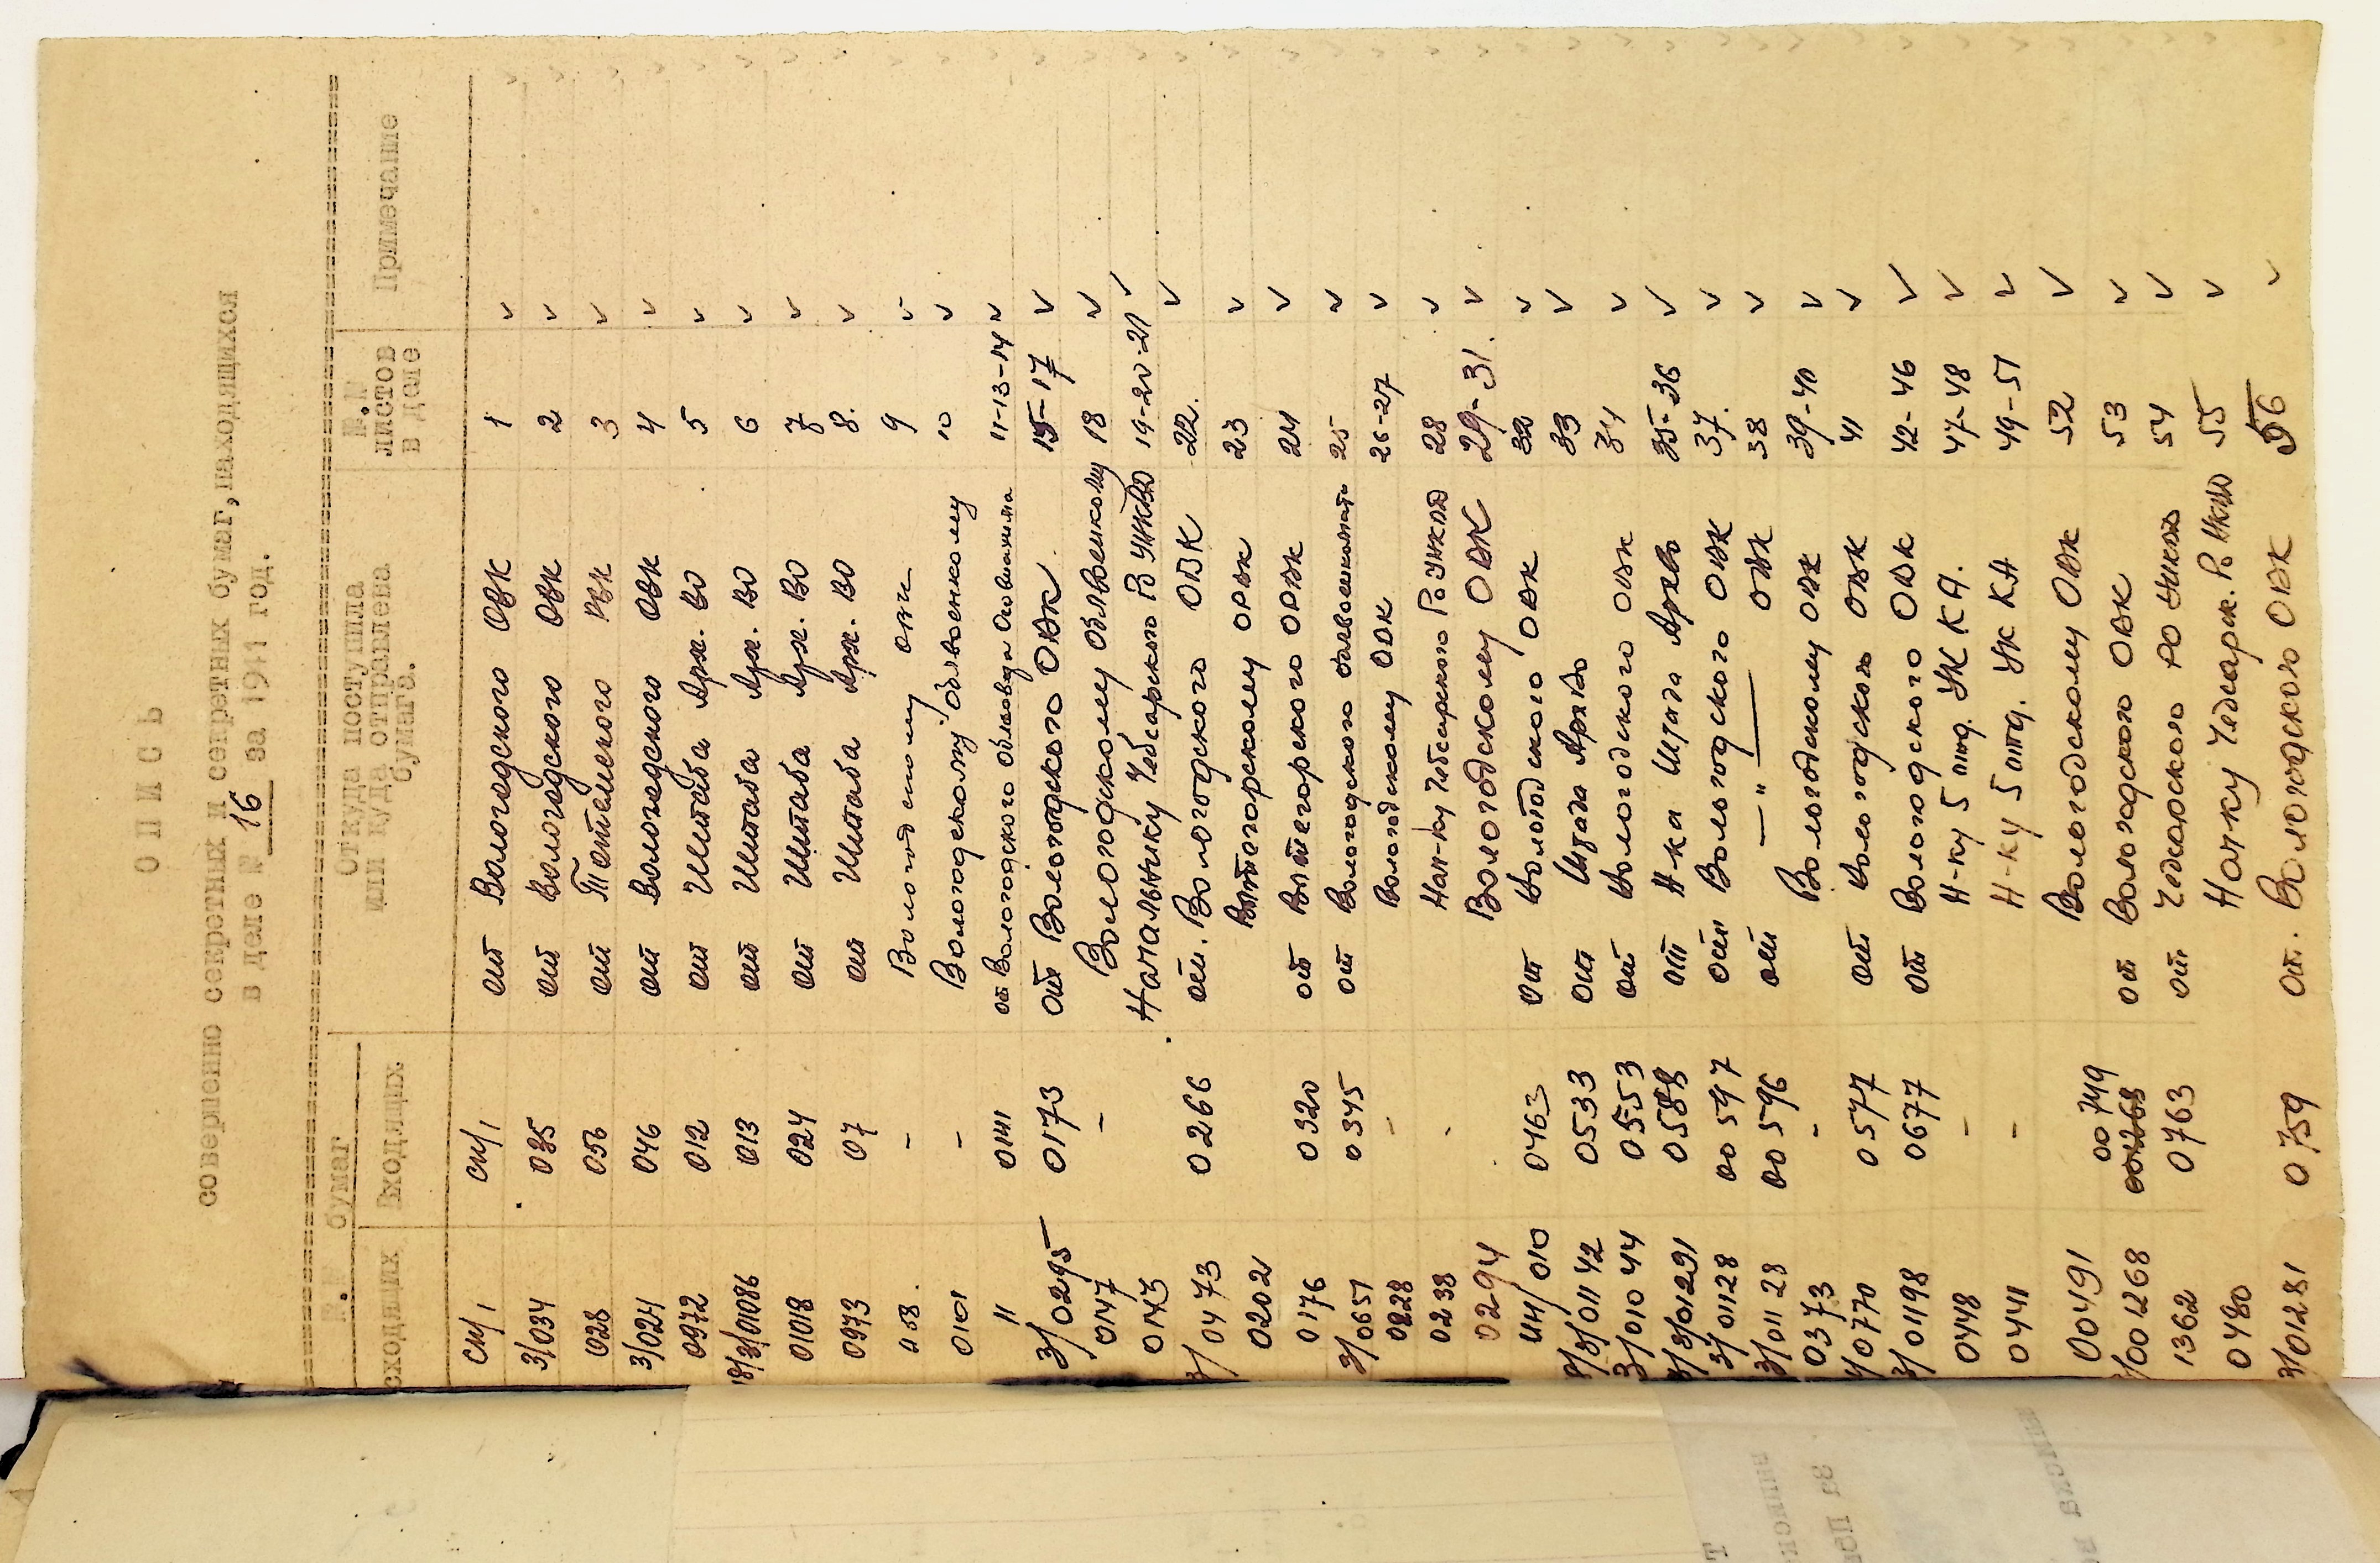 О П И С Ь
совершенно секретных и секретных бумаг, находящихся
в деле № 16 за 1941 год.
№.№ бумаг
Откуда поступила
или куда отправлена
бумага.
№.№
листов
в деле
Примечание
сходящих
Входящих
сн/1 сн/1 от Вологодского ОВК 1
3/034 035 от Вологодского ОВК 2
028 056 от Тотемского РВК 3
3/024 046 от Вологодского ОВК 4
0972 012 от Штаба Арх. ВО 5
013 от Штаба Арх. ВО 6
01018 024 от Штаба Арх. ВО 7
0973 07 от Штаба Арх. ВО 8.
- Вологодскому ОВК 9
0101 - Вологодскому Облвоенкому 10
11 0141 от Вологодского 11-13-14
3/0295 0173 от Вологодского ОВК 15-17
0147 - Вологодскому Облвоенкому 18
0143 Начальнику Чебсарского РО УНКВД 19-20-21
3/0473 0266 от. Вологодского ОВК 22.
0202 Вытегорскому ОРВК 23
0176 0320 от Вытегорского ОРВК 24
3/0651 0345 от Вологодского 25
0228 - Вологодскому ОВК 26-27
0238 Нач-ку Чебсарского РО УНКВД 28
0294 Вологодскому ОВК 29-31.
010 0463 от Вологодского ОВК 32
01142 0533 от Штаба АрхВО 33
3/01044 0553 от Вологодского ОВК 34
01291 0588 от Н-ка Штаба АрхВО 35-36
3/01128 00597 от Вологодского ОВК 37.
3/01128 00596 от —"— ОВК 38
0373 - Вологодскому ОВК 39-40
0770 0577 от Вологодского ОВК 41
3/01198 0677 от Вологодского ОВК 42-46
0448 - Н-ку 5 отд. УК КА. 47-48
0441 - Н-ку 5 отд. УК КА 49-51
00491 Вологодскому ОВК 52
/001268 00749 от Вологодского ОВК 53
1362 0763 от Чебсарского РО УНКВД 54
0480 Нач-ку Чебсарск. РО НКВД 55
3/01281 0759 от. Вологодского ОВК 56